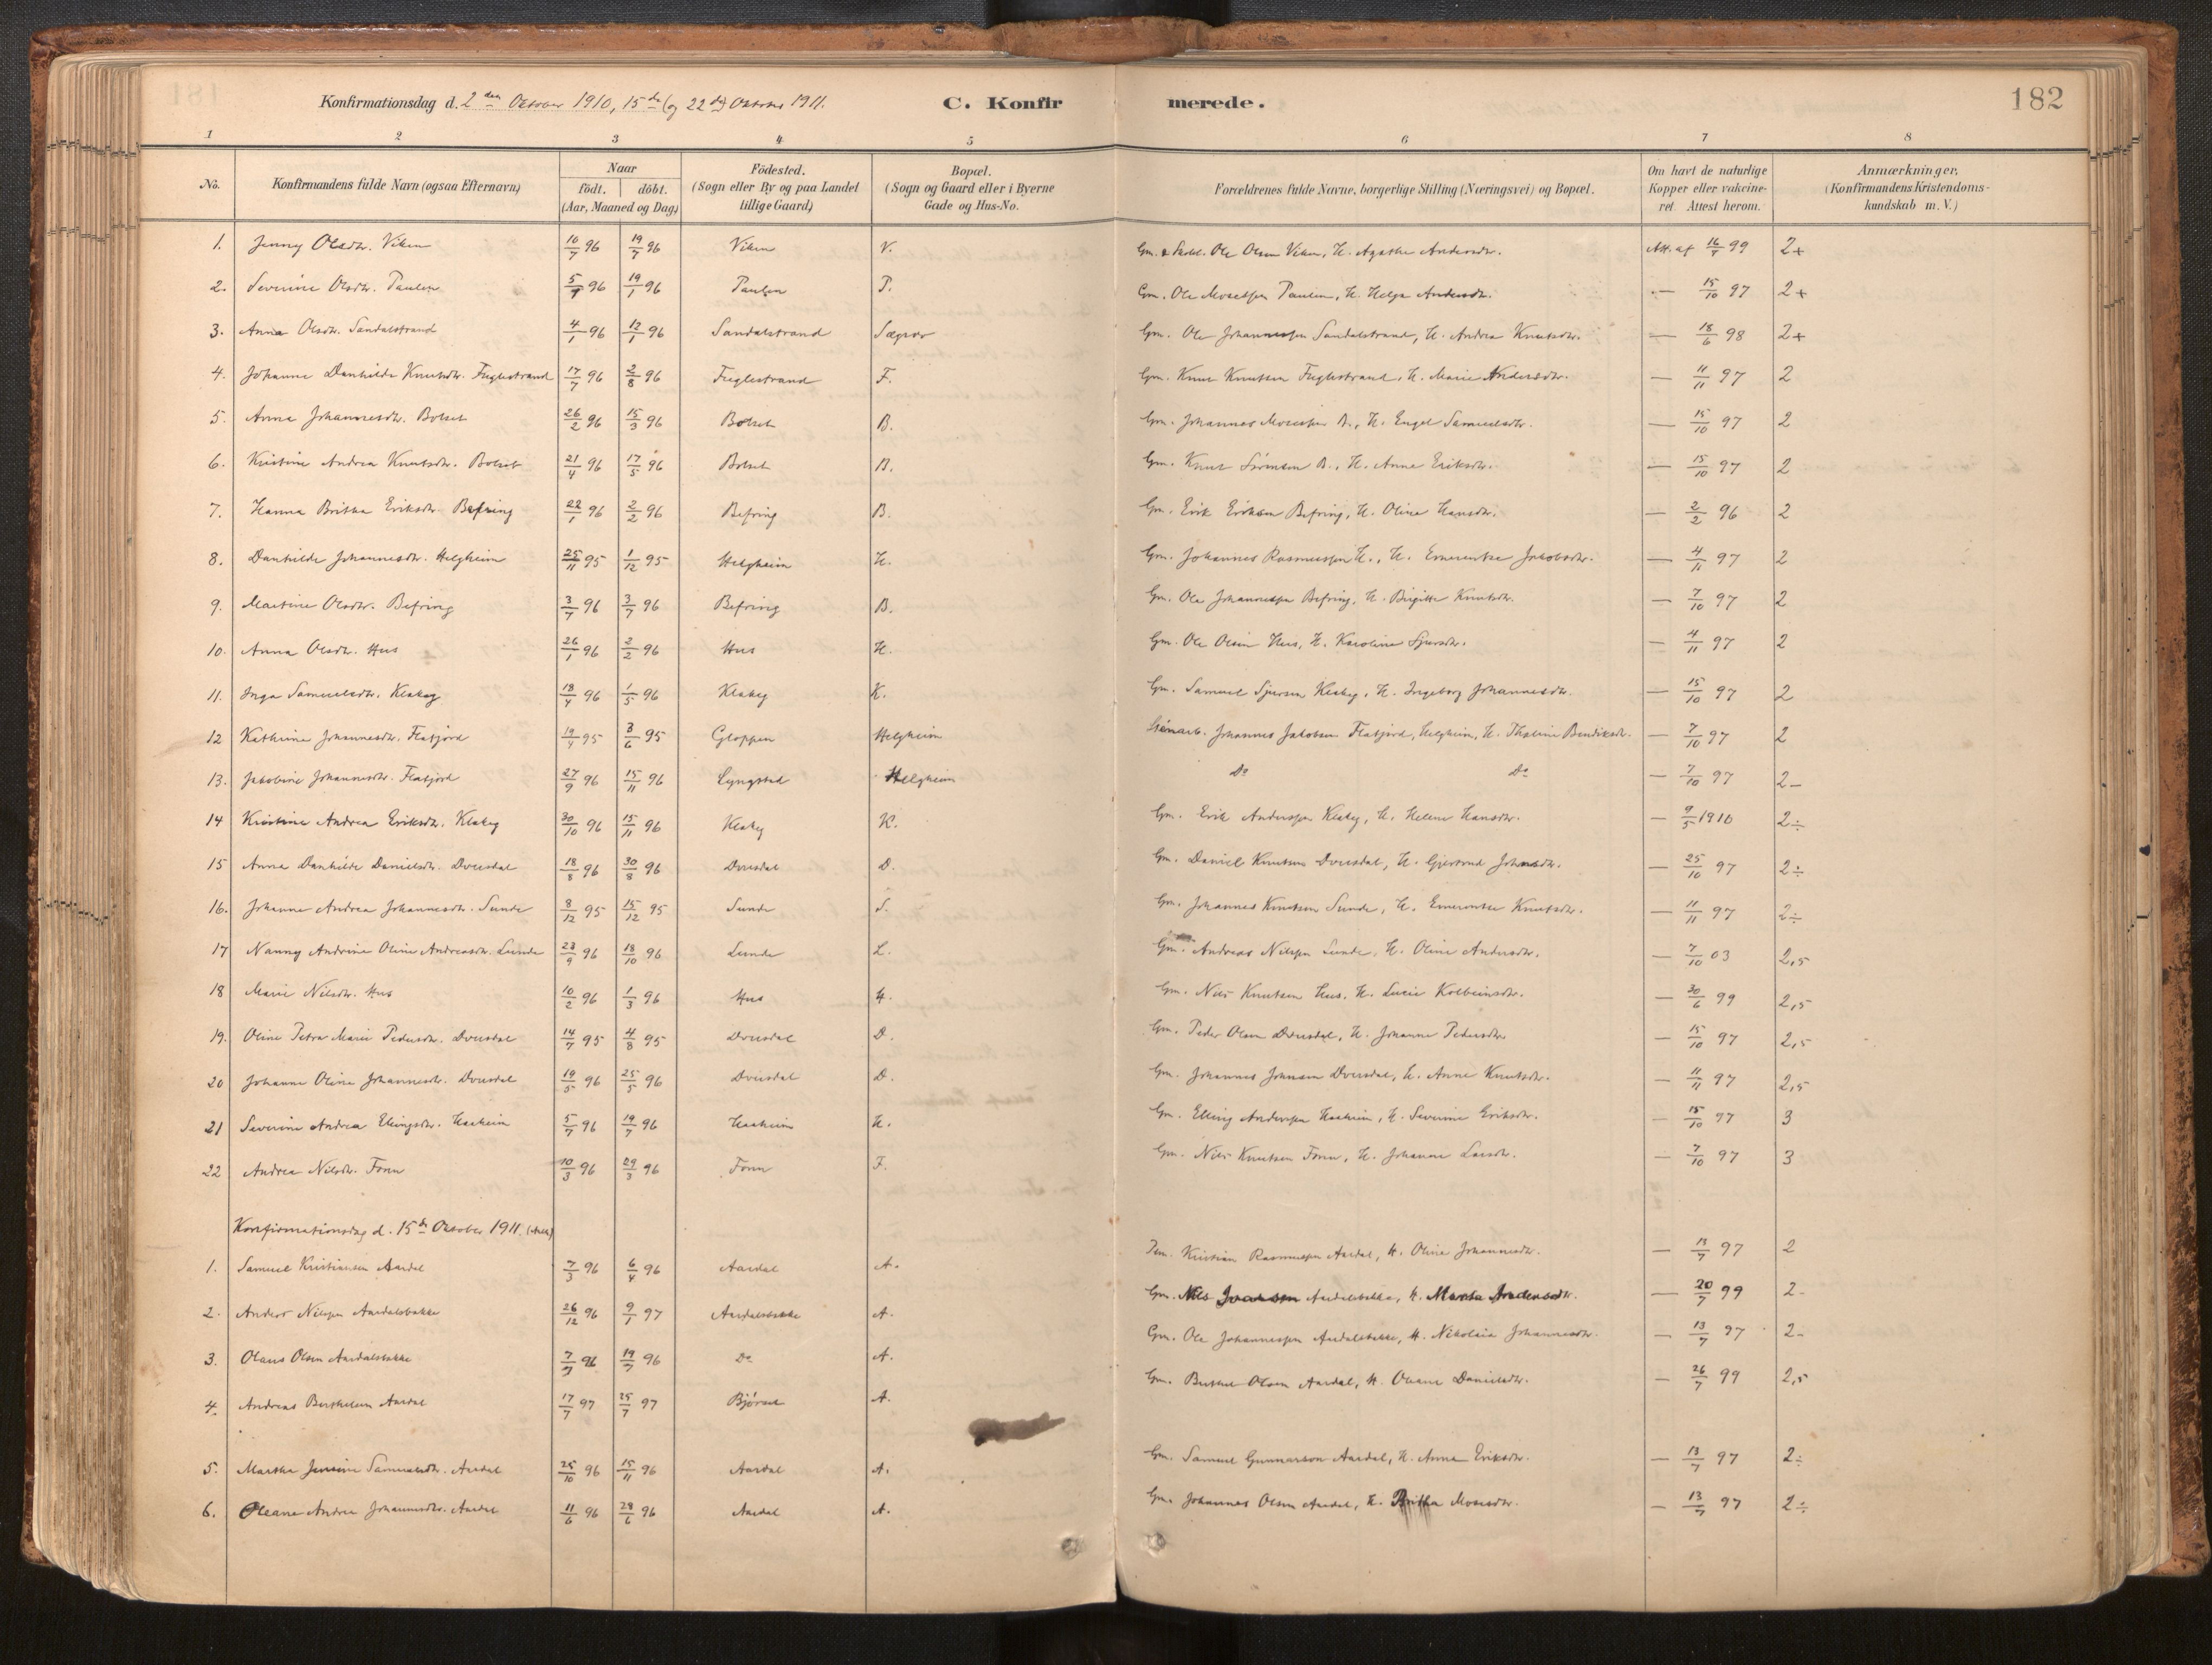 181
182
Konfirmationsdag d. 2den Oktober 1910, 15de (og 22de) Oktober 1911.
C. Konfirmerede.
1 2 3 4 5 6 7 8
No.
Konfirmandens fulde Navn (ogsaa Efternavn)
Naar
födt. döbt.
(Aar, Maaned og Dag)
Födested.
(Sogn eller By og paa Landet
tillige Gaard)
Bopæl.
(Sogn og Gaard eller i Byerne
Gade og Hus-No.
Forældrenes fulde Navne, borgerlige Stilling (Næringsvei) og Bopæl.
Om havt de naturlige
Kopper eller vaccine-
ret. Attest herom.
Anmærkninger,
(Konfirmandens Kristendoms-
kundskab m. V.)
1. Jenny Olsdtr. Viken 10/7 96 19/7 96 Viken V. Gm. & Ole Olsen Viken, H. Agathe Andersdtr. Att. af 16/7 99 2+
2. Severine Olsdtr. Paulen 96 19/1 96 Paulen P. Gm. Ole Mosessen Paulen, H. Helga Andersdtr. — 15/10 97 2+
3. Anna Olsdtr. Sandalstrand 4/1 96 12/1 96 Sandalstrand Sægrov Gm. Ole Johannessen Sandalstrand, H. Andrea Knutsdtr. — 18/6 98 2+
4. Johanne Danhilde Knutsdtr. Fuglestrand 17/7 96 2/8 96 Fuglestrand F. Gm. Knut Knutsen Fuglestrand, H. Marie Andersdtr. — 11/11 97 2
5. Anna Johannesdtr. Bolset 26/2 96 15/3 96 Bolset B. Gm. Johannes Mosessen B., H. Engel Samuelsdtr. — 15/10 97 2
6. Kristine Andrea Knutsdtr. Bolset 21/4 96 17/5 96 Bolset B. Gm. Knut Sörensen B., H. Anne Eriksdtr. — 15/10 97 2
7. Hanna Britha Eriksdtr. Befring 22/1 96 2/2 96 Befring B. Gm. Erik Eriksen Befring, H. Olina Hansdtr. — 2/2 96 2
8. Danhilde Johannesdtr. Helgheim 25/11 95 1/12 95 Helgheim H. Gm. Johannes Rasmussen H., H. Emerentse Jakobsdtr. — 4/11 97 2
9. Martine Olsdtr. Befring 3/7 96 3/7 96 Befring B. Gm. Ole Johannessen Befring, H. Birgitte Knutsdtr. — 7/10 97 2
10. Anna Olsdtr. Hus 26/1 96 2/2 96 Hus H. Gm. Ole Olsen Hus, H. Karoline Sjursdtr. — 4/11 97 2
11. Inga Samuelsdtr. Klakeg 18/4 96 1/5 96 Klakeg K. Gm. Samuel Sjursen Klakeg, H. Ingeborg Johannesdtr. — 15/10 97 2
12 Kathrine Johannesdtr. Flatjord 19/4 95 3/6 95 Gloppen Helgheim Stenarb. Johannes Jakobsen Flatjord, Helgheim, H. Thaline Bendiksdtr. — 7/10 97 2
13. Jakobine Johannesdtr. Flatjord 27/9 96 15/11 96 Lyngstad Helgheim Do Do — 7/10 97 2–
14 Kristine Andrea Eriksdtr. Klakeg 30/10 96 15/11 96 Klakeg K. Gm. Erik Anderssen Klakeg, H. Helene Hansdtr. — 9/5 1910 2÷
15 Anna Danhilde Danielsdtr. Dvergsdal 18/8 96 30/8 96 D. Gm. Daniel Knutsen H. Gjertrud Johnsdtr. — 25/10 97 2÷
16. Johanne Andrea Johannesdtr. Sunde 8/12 95 15/12 95 Sunde S. Gm. Johannes Knutsen Sunde, H. Emerentse Knutsdtr. — 11/11 97 2÷
17 Nanny Andrine Oline Andreasdtr. Lunde 23/9 96 18/10 96 Lunde L. Gm. Andreas Nilssen Lunde, H. Oline Andersdtr. — 7/10 03 2,5
18 Marie Nilsdtr. Hus 10/2 96 1/3 96 Hus H. Gm. Nils Knutsen Hus, H. Lucie Kolbeinsdtr. — 30/6 99 2,5
19. Oline Petra Marie Pedersdtr. 14/7 95 4/8 95 D. Gm. Peder Olsen H. Johanne Pedersdtr. — 15/10 97 2,5
20 Johanne Oline Johannesdtr. 19/5 96 25/5 96 D. Gm. Johannes Johnsen H. Anne Knutsdtr. — 11/11 97 2,5
21 Severine Andrea Ellingsdtr. Haaheim 5/7 96 19/7 96 Haaheim H. Gm. Elling Anderssen Haaheim, H. Severine Eriksdtr. — 15/10 97 3
22 Andrea Nilsdtr. Fonn 10/3 96 29/3 96 Fonn F. Gm. Nils Knutsen Fonn, H. Johanne Larsdtr. — 7/10 97 3
Konfirmationsdag d. 15de Oktober 1911.
1. Samuel Kristiansen Aardal 7/3 96 6/4 96 Aardal A. Kristian Rasmussen Aardal, H. Oline Johannesdtr. — 13/7 97 2
2. Anders Nilssen Aardalsbakke 26/12 96 9/1 97 Aardalsbakke A. Gm. Nils Aardalsbakke, H. Marta Andersdtr. — 20/7 99 2-
3. Olaus Olsen Aardalsbakke 7/7 96 19/7 96 Do A. Gm. Ole Johannessen Aardalsbakke, H. Nikolaia Johannesdtr. — 13/7 97 2-
4. Andreas Berthelsen Aardal 17/7 97 25/7 97 Bjórset A. Gm. Berthel Olsen Aardal, H. Oleane Danielsdtr. — 26/7 99 2,5
5. Martha Jensine Samuelsdtr. Aardal 25/10 96 15/11 96 Aardal A. Gm. Samuel Gunnarson Aardal, H. Anna Eriksdtr. — 13/7 97 2÷
6. Oleane Andrea Johannesdtr. Aardal 11/6 96 28/6 96 Aardal A. Gm. Johannes Olsen Aardal, H. Britha Mosesdtr. — 13/7 97 2÷